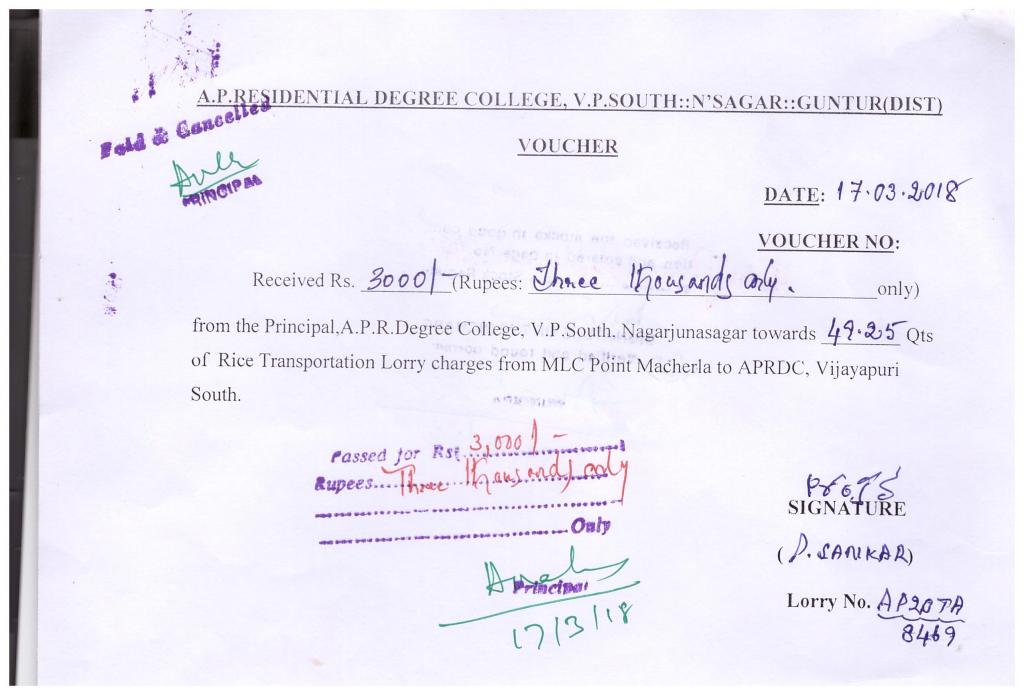 A.P.RESIDENTIAL DEGREE COLLEGE, V.P.SOUTH::N'SAGAR::GUNTUR(DIST)
Paid & Cancelled
PRINCIPAL
VOUCHER
DATE: 17.03.2018
VOUCHER NO:
Received Rs. 3000/- (Rupees: Three thousands only. only)
from the Principal,A.P.R.Degree College, V.P.South, Nagarjunasagar towards 49.25 Qts
of Rice Transportation Lorry charges from MLC Point Macherla to APRDC, Vijayapuri
South.
Passed for Rs. 3,000/-
Rupees Three thousands only
Only
Principal
17/3/18
SIGNATURE
(P. SANKAR)
Lorry No. AP20TA
8469